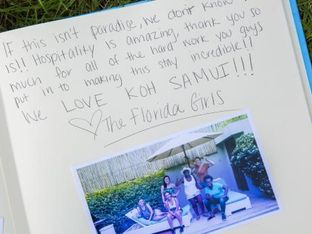 If this isn't paradise, we don't know what
is!! Hospitality is amazing, thank you so
much for all of the hard work you guys
put in to making this stay incredible!!
We LOVE KOH SAMUI!!!
♡The Florida Girls